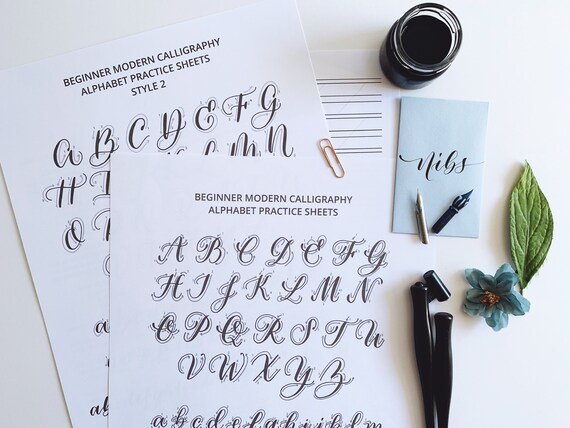 BEGINNER MODERN CALLIGRAPHY
ALPHABET PRACTICE SHEETS
STYLE 2
A B C D E F G
H
O
a
ab
BEGINNER MODERN CALLIGRAPHY
ALPHABET PRACTICE SHEETS
A B C D E F G
H I J K L M N
O P Q R S T U
V W X Y Z
a b c d e f g h i j k l m
nibs